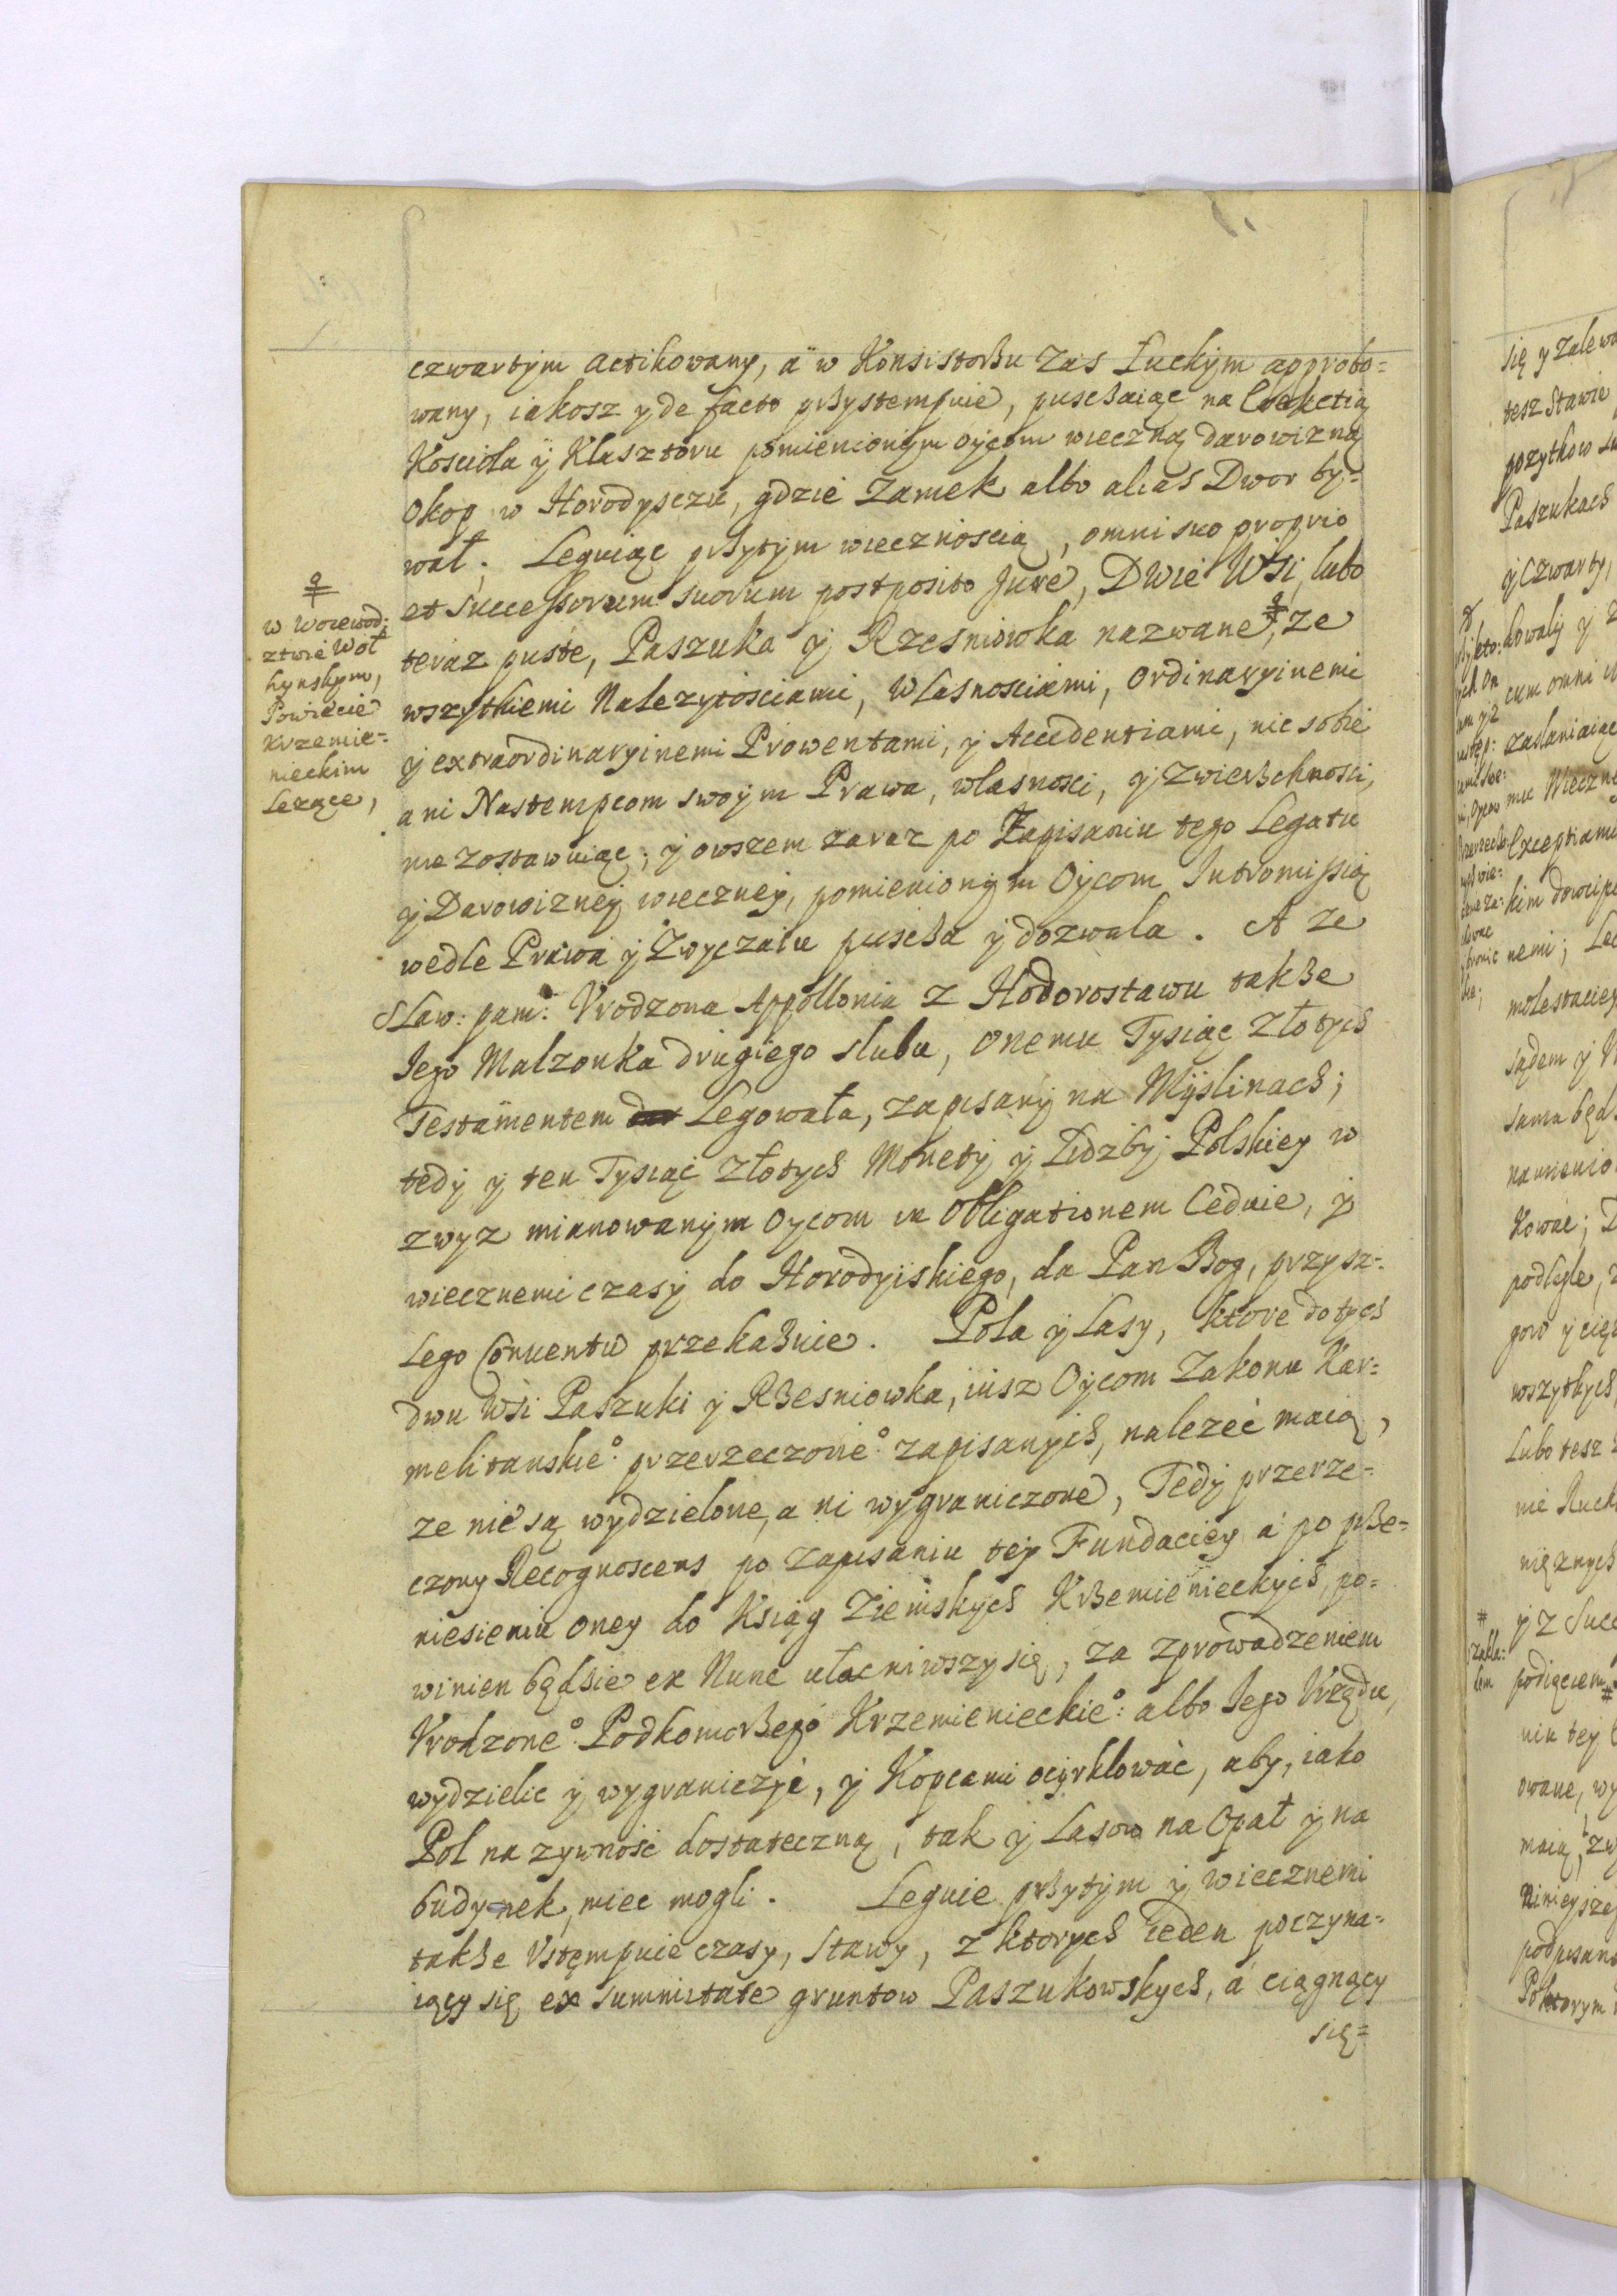 czwartym actikowany, a w Konsistorzu zas Łuckym approbo=
wany, iakosz y de facto przystempuie, puszczaiąc na Erekctią
Kosciola y Klasztoru pomienionym oycom wieczną darowizną
Okop w Horodysczu, gdzie Zamek albo alias Dwor by=
wał. Leguiąc przytym wiecznoscią, omni suo proprio
et successorum suorum postposito Jure, Dwie Wsi, lubo
teraz puste, Paszuka y Rzesniowka nazwane, ze
wszytkiemi Nalezytosciami, Wlasnosciami, Ordinaryinemi
y extraordinaryinemi Prowentami, y Accidentiami, nic sobie
ani Nastempcom swoym Prawa, wlasnosci, y zwierzchnosci,
nie zostawuiąc; y owszem zaraz po Zapisaniu tego Legatu
y Darowizney wieczney, pomienionym Oycom Intromissią
wedle Prawa y Zwyczaiu puscza y dozwala. A ze
Slaw: pam: Vrodzona Appollonia z Hodorostawu takze
Jego Malzonka drugiego slubu, onemu Tysiąc Złotych
Testamentem Legowała, zapisany na Myslinach;
tedy y ten Tysiąc Złotych Monety y Lidzby Polskiey w
zwyz mianowanym Oycom in Obligationem Ceduie, y
wiecznemi czasy do Horodyiskiego, da Pan Bog, przysz=
lego Conuentu przekazuie. Pola y Lasy, ktore do tych
dwu Wsi Paszuki y Rzesniowka, iusz Oycom Zakonu Kar=
melitanskie° przerzeczone° zapisanych, nalezeć maią,
ze nie są wydzielone, a ni wygraniczone, Tedy przerze=
czony Recognoscens po Zapisaniu tey Fundaciey a po prze=
niesieniu oney do Ksiąg Ziemskych Krzemienieckych, po=
winien będzie ex Nunc ułacniwszy się, za zprowadzeniem
Vrodzone° Podkomorzego Krzemienieckie° albo Jego Vrzędu,
wydzielic y wygraniczyć, y Kopcami ocyrklować, aby, iako
Pol na zywność dostateczną, tak y Lasow na Opał y na
budynek, miec mogli. Leguie przytym y wiecznemi
takze Vstęmpuie czasy, Stawy, z ktorych ieden poczyna=
iący się ex summitate gruntow Paszukowskych, a ciągnący
się=
w Woiewod:
ztwie Woł
hynskym,
Powiecie
Krzemie=
nieckim
Lezące,
się y zalewa
tesz Stawie
pozytkow
Paszukach
y Czwarty,
kowaly y
cum omni
zaslaniaiąc
Exceptiami
nemi; Le
molestaciey
sądem y
kować;
podlegle,
wszytkych,
Lubo tesz
podięciem
owane, wy